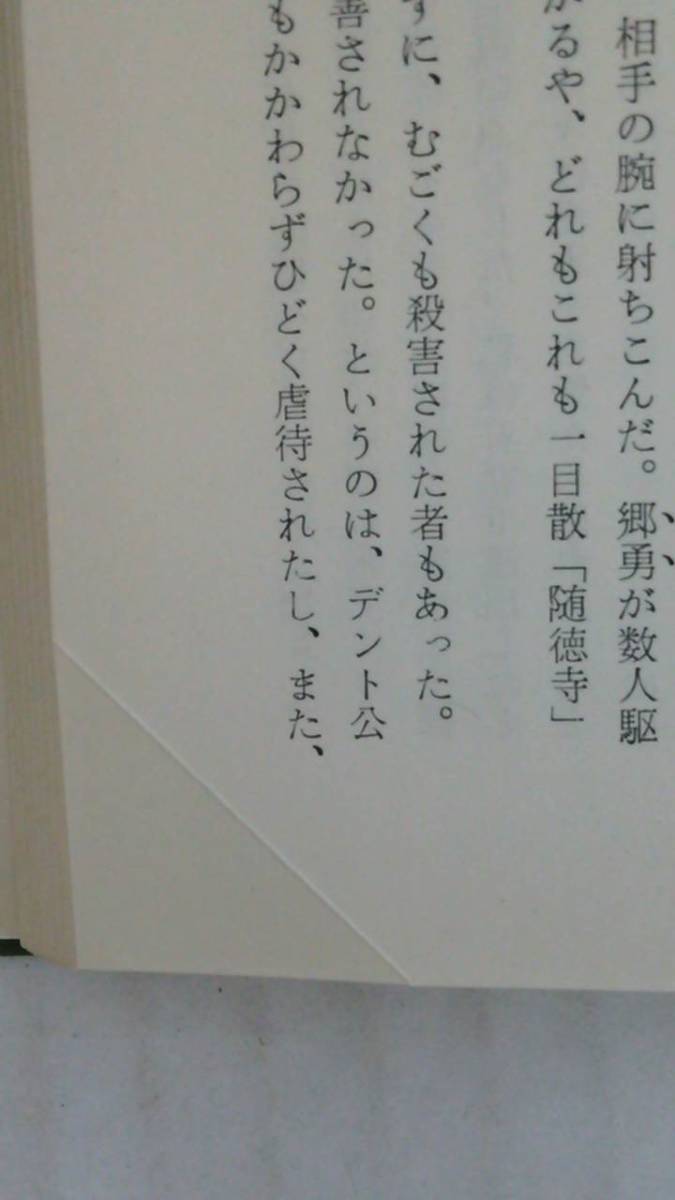 相手の腕に射ちこんだ。郷勇が数人駆
るや、どれもこれも一目散「随徳寺」
ずに、むごくも殺害された者もあった。
善されなかった。というのは、デント公
もかかわらずひどく虐待されたし、また、